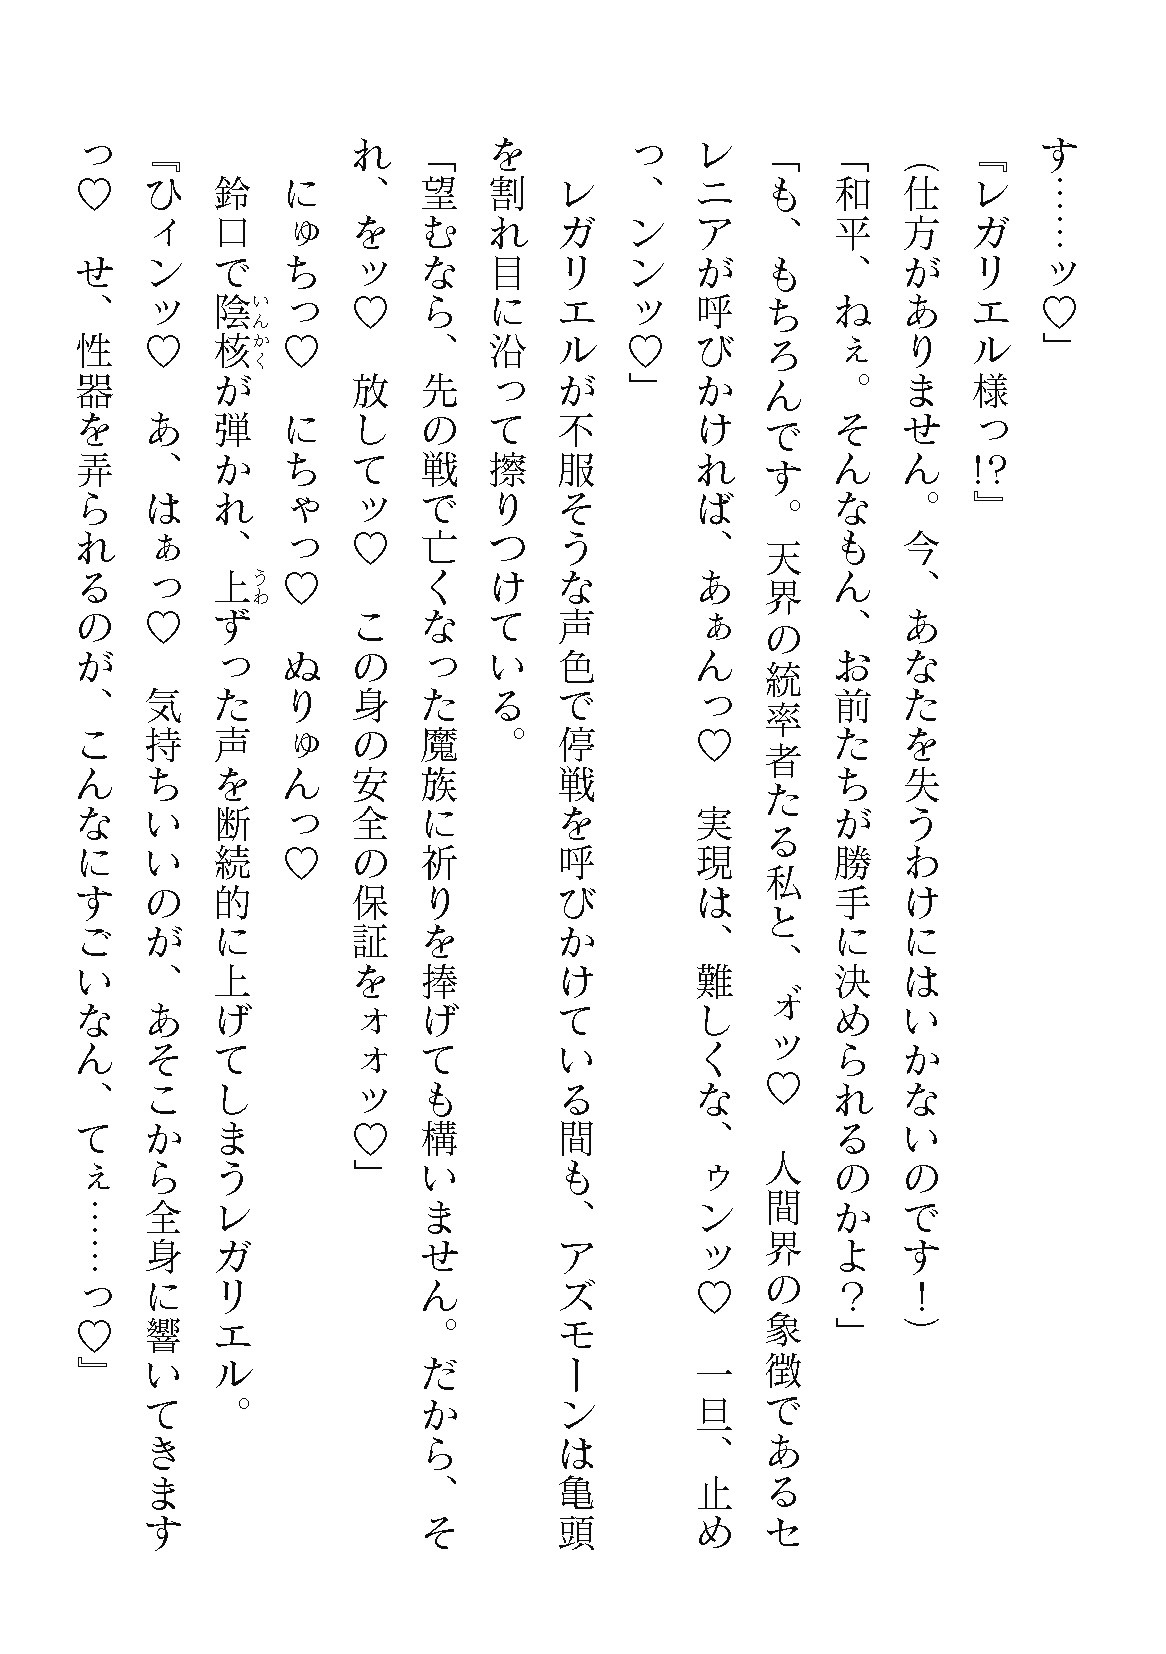 す……ッ♡」
『レガリエル様っ!?』
（仕方がありません。今、あなたを失うわけにはいかないのです！）
「和平、ねぇ。そんなもん、お前たちが勝手に決められるのかよ？」
「も、もちろんです。天界の統率者たる私と、ォ゛ッ♡　人間界の象徴であるセ
レニアが呼びかければ、あぁんっ♡　実現は、難しくな、ゥンッ♡　一旦、止め
っ、ンンッ♡」
　レガリエルが不服そうな声色で停戦を呼びかけている間も、アズモーンは亀頭
を割れ目に沿って擦りつけている。
「望むなら、先の戦で亡くなった魔族に祈りを捧げても構いません。だから、そ
れ、をッ♡　放してッ♡　この身の安全の保証をォォッ♡」
　にゅちっ♡　にちゃっ♡　ぬりゅんっ♡
　鈴口で陰核が弾かれ、上ずった声を断続的に上げてしまうレガリエル。
『ひィンッ♡　あ、はぁっ♡　気持ちいいのが、あそこから全身に響いてきます
っ♡　せ、性器を弄られるのが、こんなにすごいなん、てぇ……っ♡』